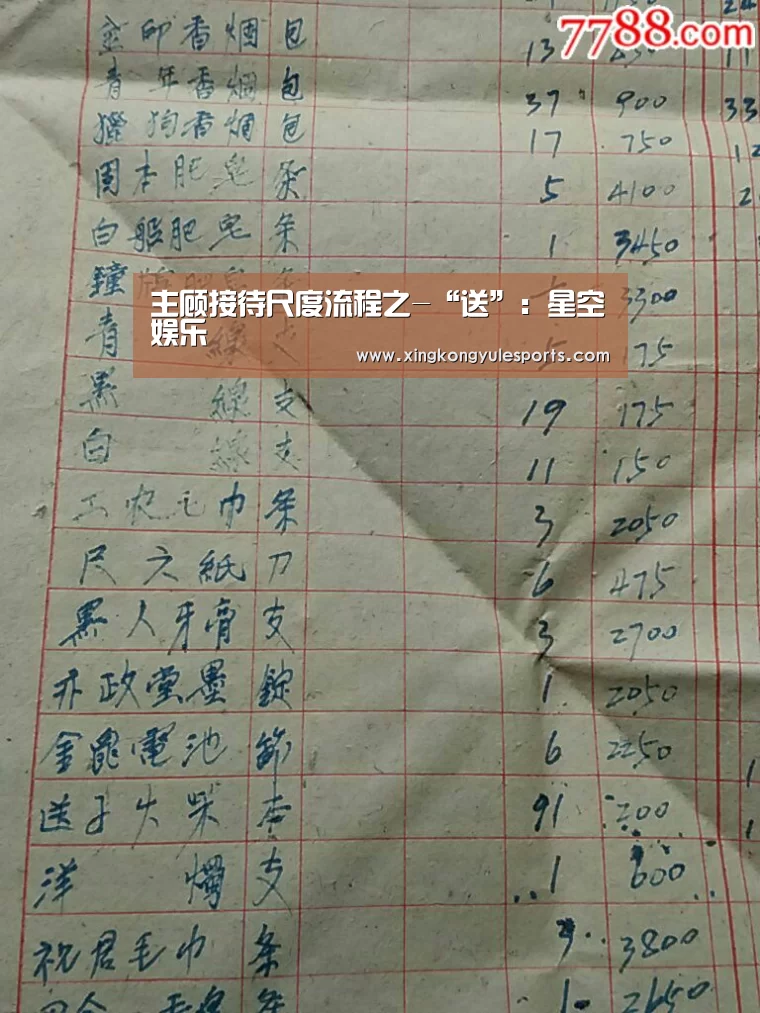 7788.com
香烟包 13
青年香烟包 37 900 33
猎狗香烟包 17 750 12
固本肥皂条 5 4100 2
白船肥皂条 1 3450
鐘 3300
主顾接待尺度流程之–“送”：星空
娱乐
www.xingkongyulesports.com
青 線支 5 175
黑 線支 19 175
白 線支 11 150
工农毛巾条 3 2050
尺六紙刀 6 475
黑人牙膏支 3 2700
政堂墨錠 1 2050
金龟電池節 6 2250
送子火柴 91 200
洋 燭支 1 600
祝君毛巾条 3 3800
1 2650